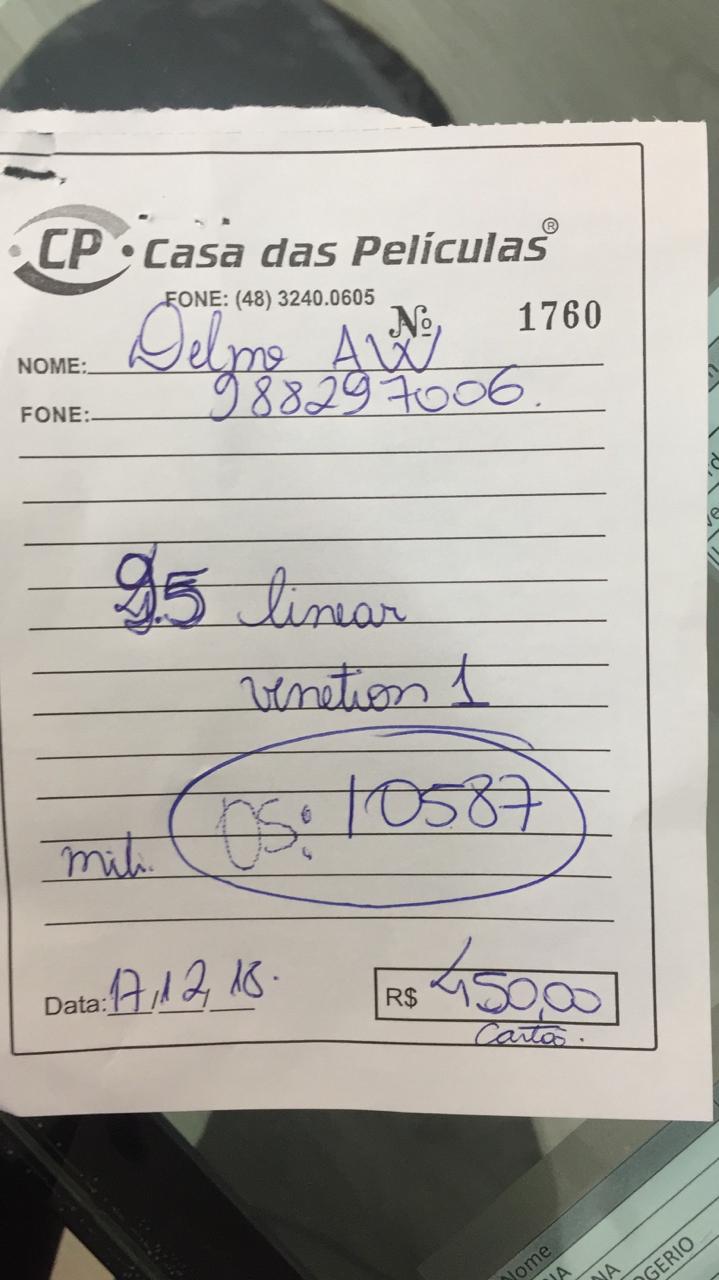 CP Casa das Películas®
FONE: (48) 3240.0605
Nº 1760
NOME: Delmo AW
FONE: 988297006.
linear
venetion 1
OS: 10587
Data: 17,12,18.
R$ 450,00
Cartão.
Nome